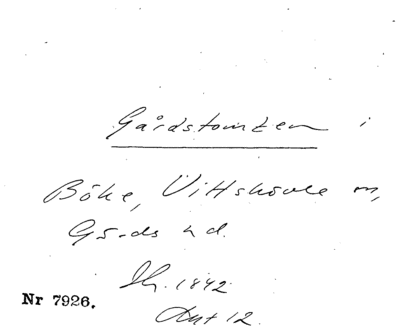 Gårdstomten i
Böke, Vittskövle sn,
Gärds hd.
Sk. 1842
Nr 7926.
Akt 12.